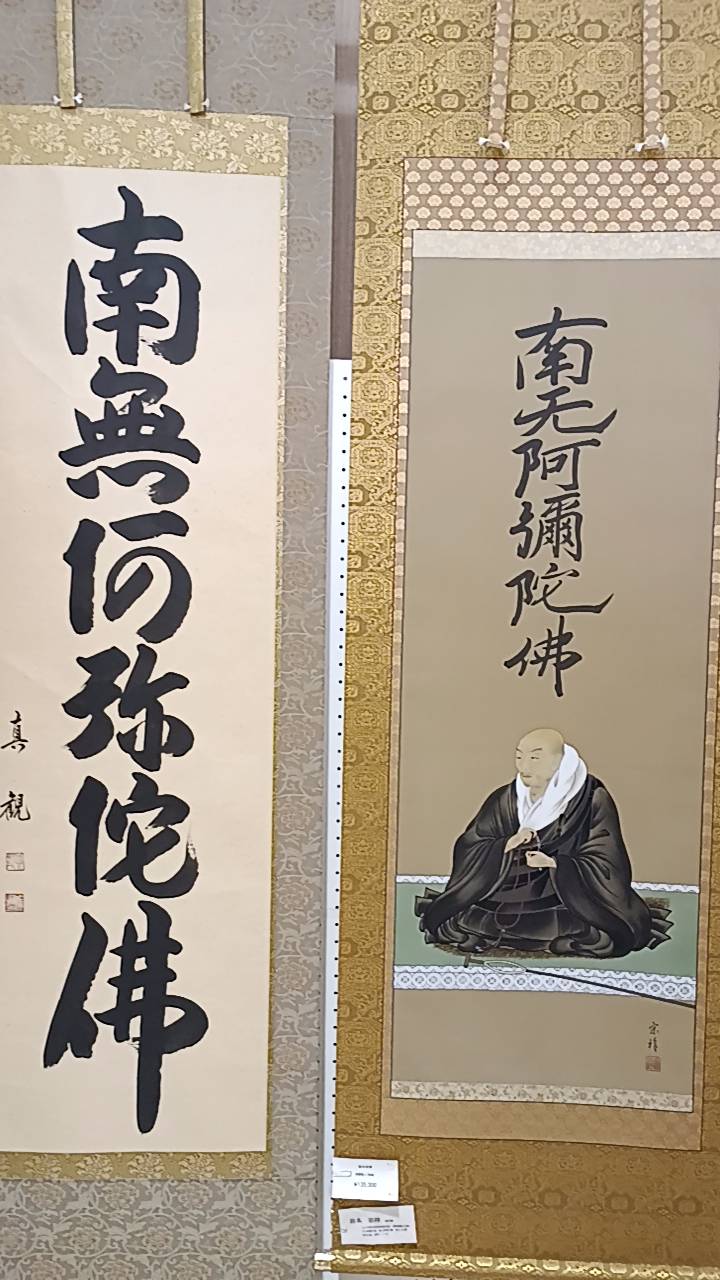 南無阿弥陀佛
真観
南无阿彌陀佛
宗祥
¥135,300